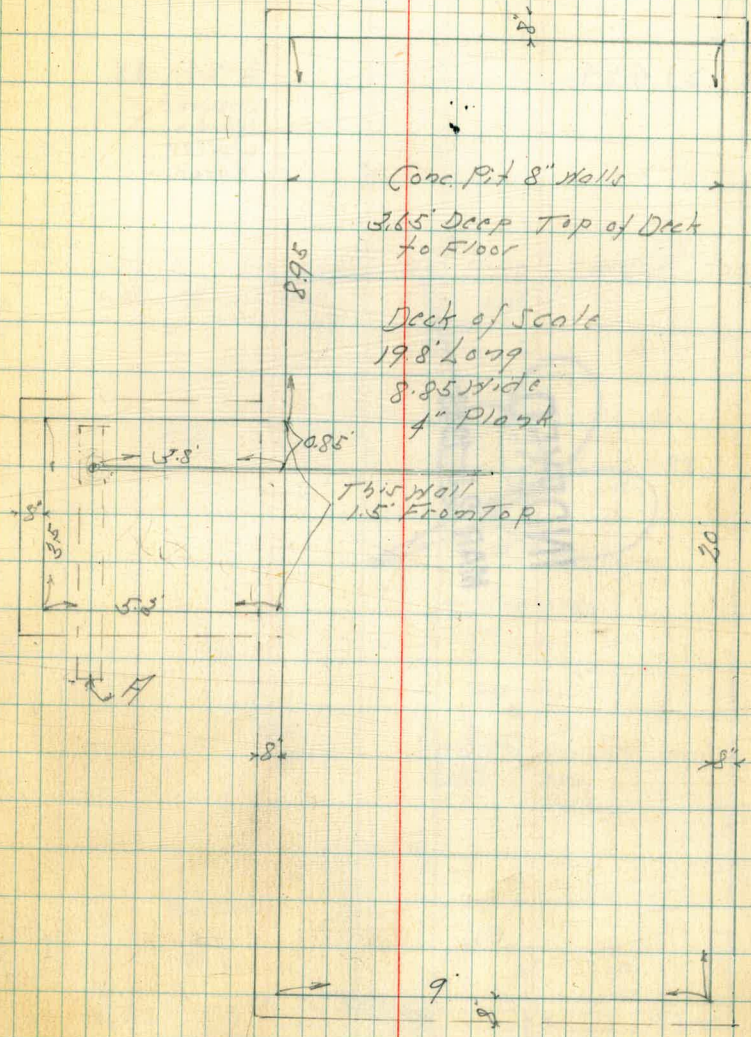 8"
Conc. Pit 8" Walls
3.65' Deep Top of Deck
to Floor
8.95
Deck of Scale
19.8' Long
8.85 Wide
4" Plank
3.8'
0.85'
This Wall
1.5' From Top
8"
3.5
20'
5.2
A
8"
8"
9'
8"